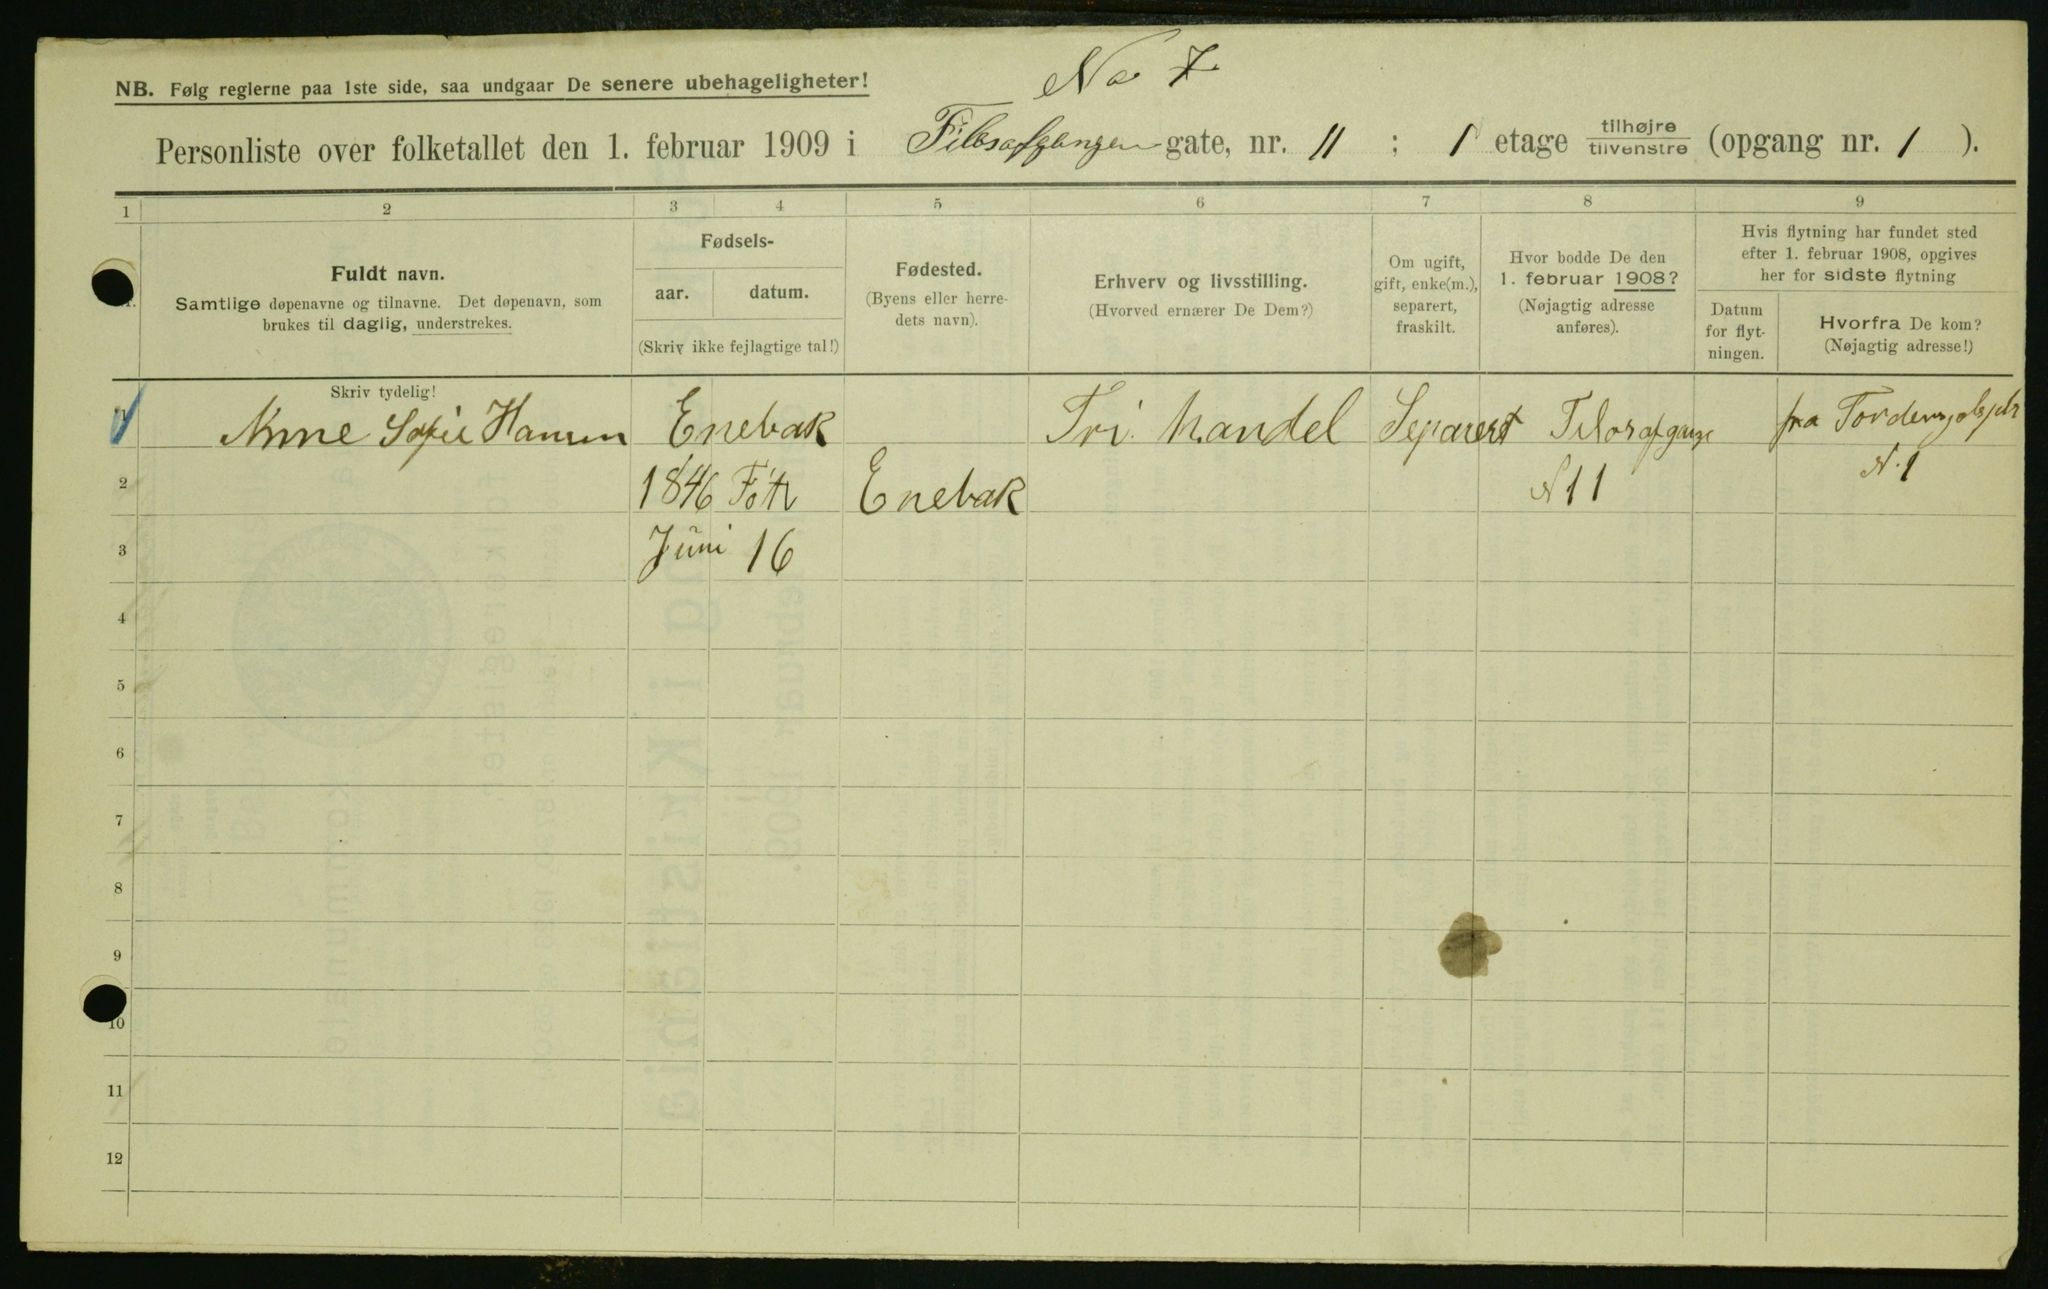 No 7
NB. Følg reglerne paa 1ste side, saa undgaar De senere ubehageligheter!
Personliste over folketallet den 1. februar 1909 i Filosofgangen gate, nr. 11 ; 1 etage tilhøjre tilvenstre (opgang nr. 1 ).
1 2 3 4 5 6 7 8 9
Fuldt navn.
Samtlige døpenavne og tilnavne. Det døpenavn, som
brukes til daglig, understrekes.
Skriv tydelig!
Fødsels-
aar. datum.
(Skriv ikke fejlagtige tal!)
Fødested.
(Byens eller herre-
dets navn).
Erhverv og livsstilling.
(Hvorved ernærer De Dem?)
Om ugift,
gift, enke(m.),
separert,
fraskilt.
Hvor bodde De den
1. februar 1908?
(Nøjagtig adresse
anføres).
Hvis flytning har fundet sted
efter 1. februar 1908, opgives
her for sidste flytning
Datum
for flyt-
ningen.
Hvorfra De kom?
(Nøjagtig adresse!)
1 Anne Sofie Hansen Enebak Fri Handel Separert Filosofgange fra
2 1846 Enebak N 11 N. 1
3 Juni 16
4
5
6
7
8
9
10
11
12